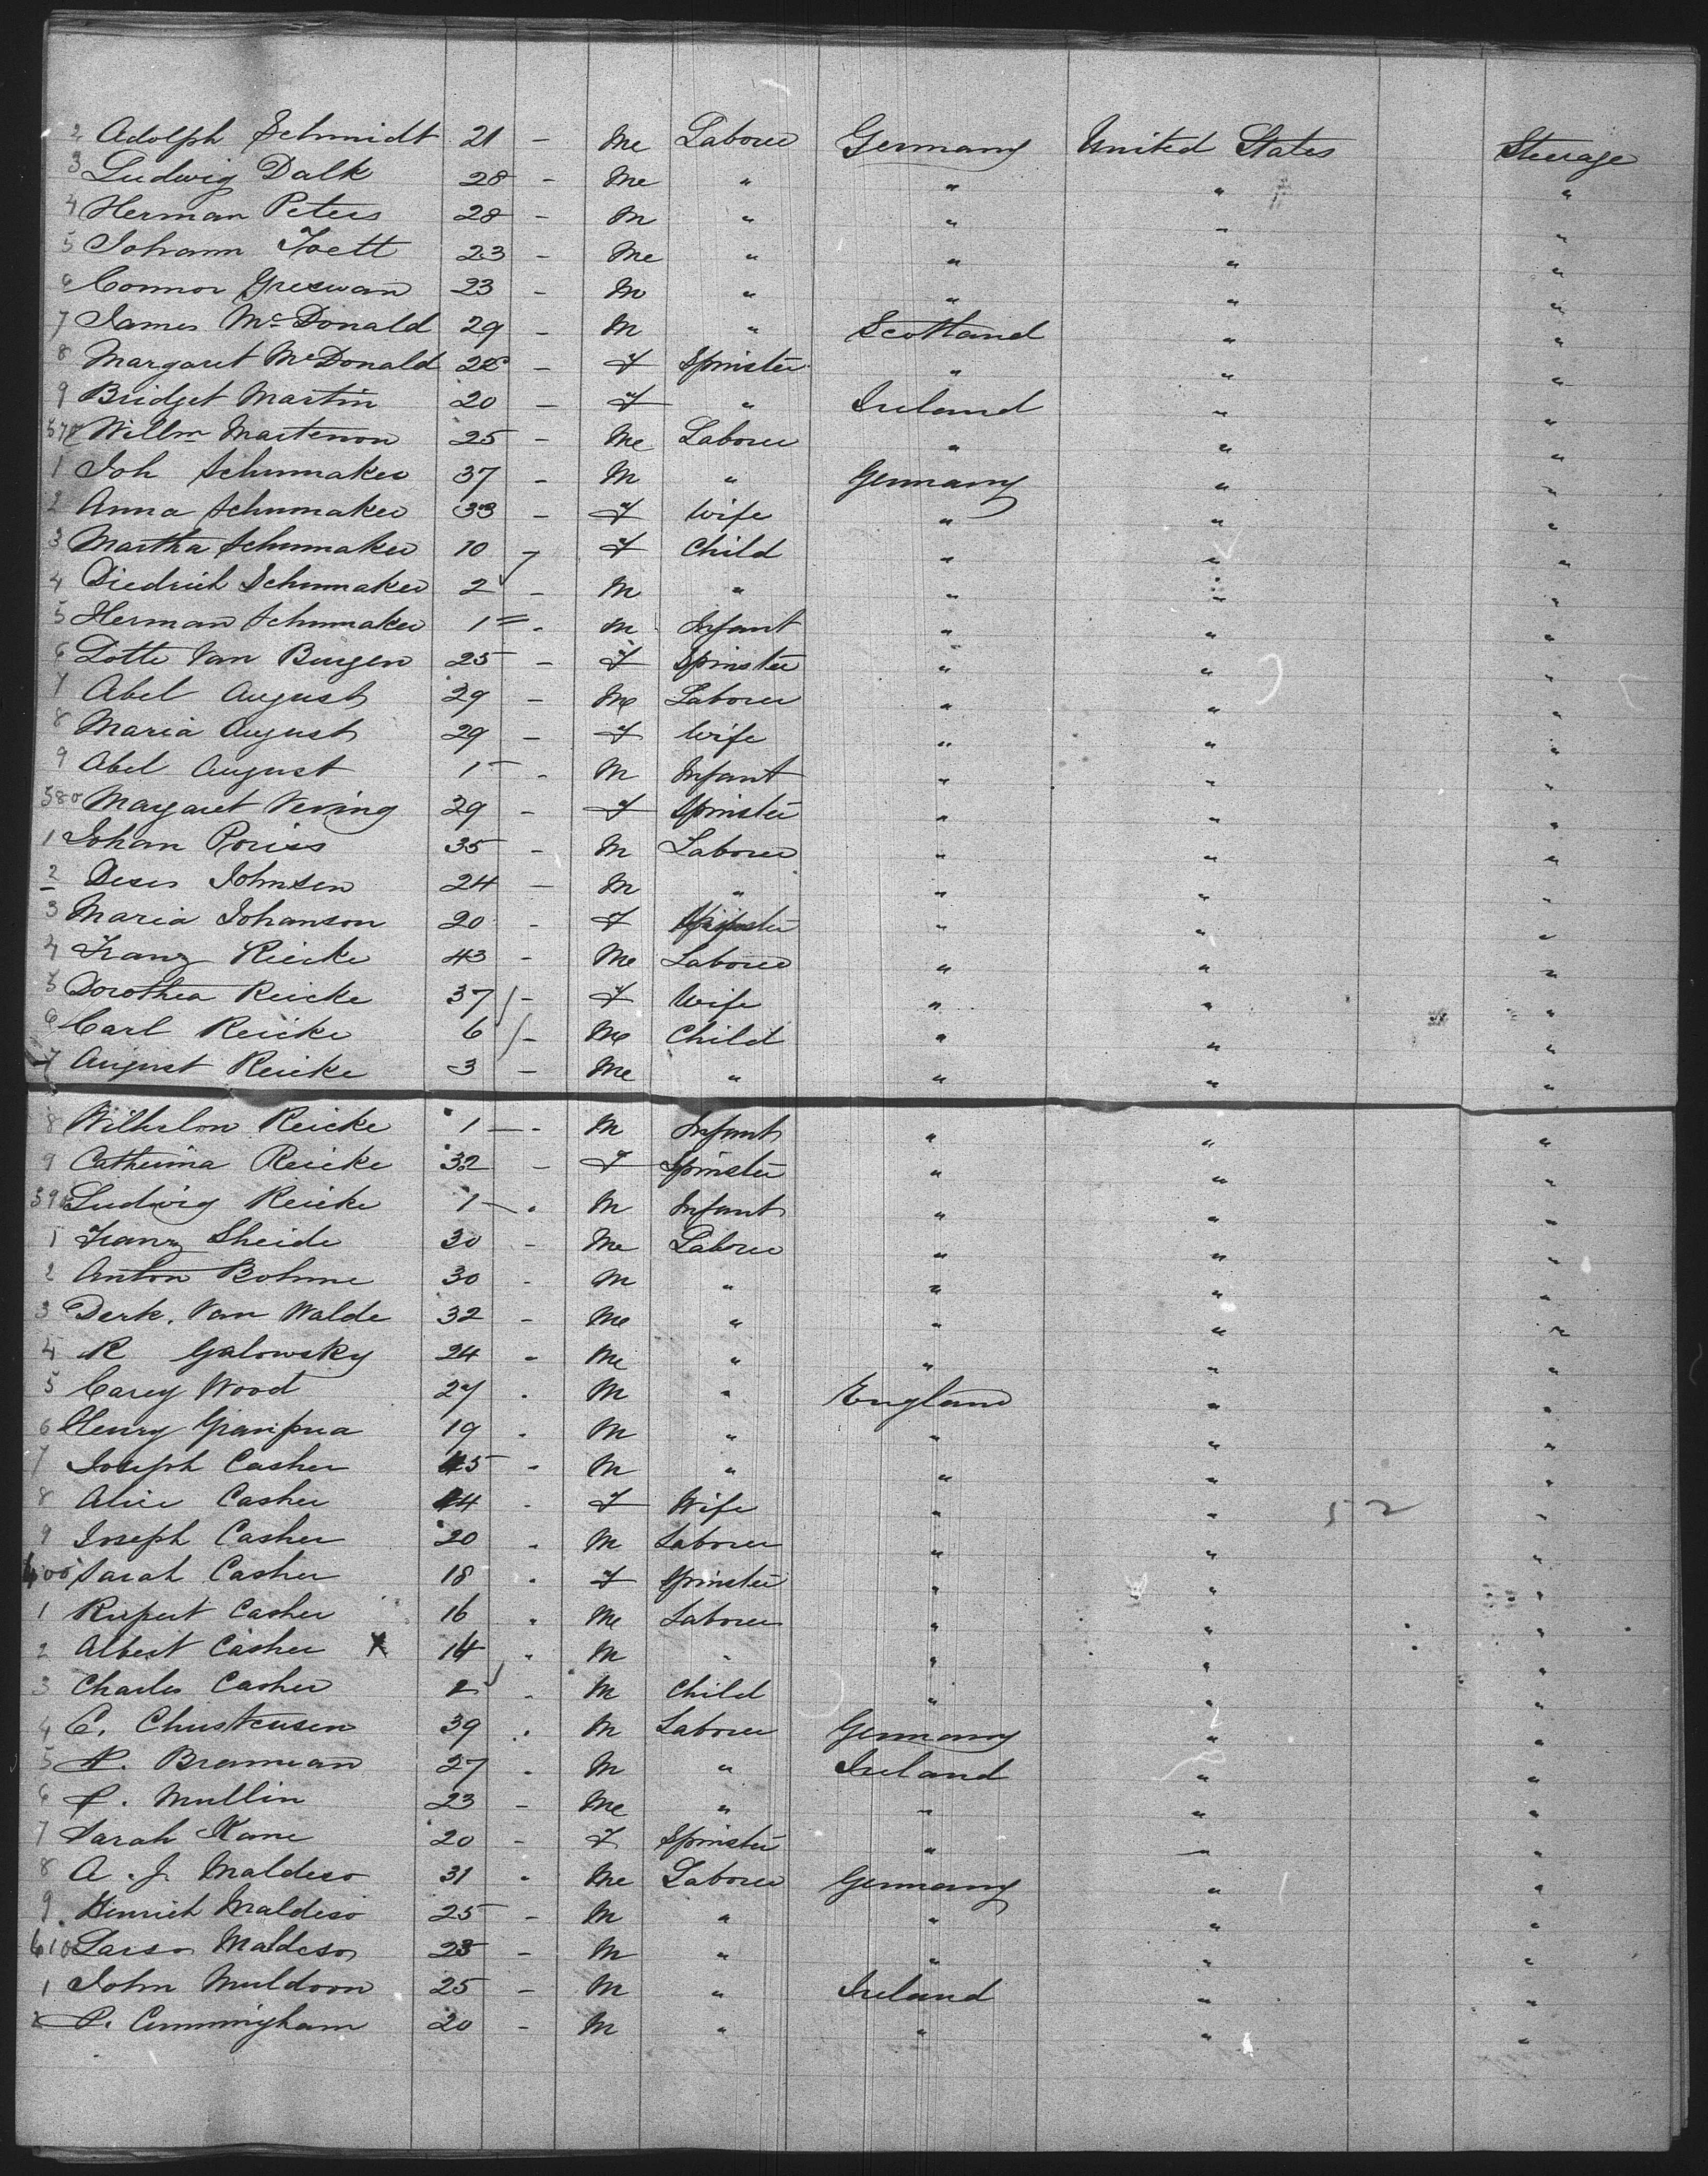 2 Adolph Schmidt 21 - M Laborer Germany United States Steerage
3 Ludwig Dalk 28 - M " " " "
4 Herman Peters 28 - M " " " "
5 Johann 23 - M " " " "
6 Connor 23 - M " " " "
7 James McDonald 29 - M " Scotland " "
8 Margaret McDonald - F Spinster " " "
9 Bridget Martin 20 - F " Ireland " "
570 Willm Martenon 25 - M Laborer " " "
1 Joh Schumaker 37 - M " Germany " "
2 Anna Schumaker 33 - F Wife " " "
3 Martha Schumaker 10 - F Child " " "
4 Diedrich Schumaker 2 - M " " " "
5 Herman Schumaker 1 - M Infant " " "
6 Lotte Van Burgen 25 - F Spinster " " "
7 Abel August 29 - M Laborer " " "
8 Maria August 29 - F Wife " " "
9 Abel August 1 - M Infant " " "
580 Margaret 29 - F Spinster " " "
1 Johan 35 - M Laborer " " "
2 Johnsen 24 - M " " " "
3 Maria Johanson 20 - F Spinster " " "
4 Franz Reicke 43 - M Laborer " " "
5 Dorothea Reicke 37 - F Wife " " "
6 Carl Reicke 6 - M Child " " "
7 August Reicke 3 - M " " " "
8 Wilhelm Reicke 1 - M Infant " " "
9 Catherina Reicke 32 - F Spinster " " "
590 Ludwig Reicke 1 - M Infant " " "
1 Franz Sheide 30 - M Laborer " " "
2 Anton Bohme 30 - M " " " "
3 Derk. Van Walde 32 - M " " " "
4 R Galowsky 24 - M " " " "
5 Carey Wood 27 - M " England " "
6 Henry 19 - M " " " "
7 Joseph Casher 45 - M " " " "
8 Alice Casher 44 - F Wife " " "
9 Joseph Casher 20 - M Laborer " " "
600 Sarah Casher 18 - F Spinster " " "
1 Rupert Casher 16 - M Laborer " " "
2 Albert Casher X 14 - M " " " "
3 Charles Casher - M Child " " "
4 C. Christensen 39 - M Laborer Germany " "
5 27 - M " Ireland " "
6 P. Mullin 23 - M " " " "
7 Sarah Kane 20 - F Spinster " " "
8 A. J. Maldeso 31 - M Laborer Germany " "
9 Hinrich Maldeso 25 - M " " " "
610 Maldeso - M " " " "
1 John Muldoon 25 - M " Ireland " "
2 P. Cunningham 20 - M " " " "
52